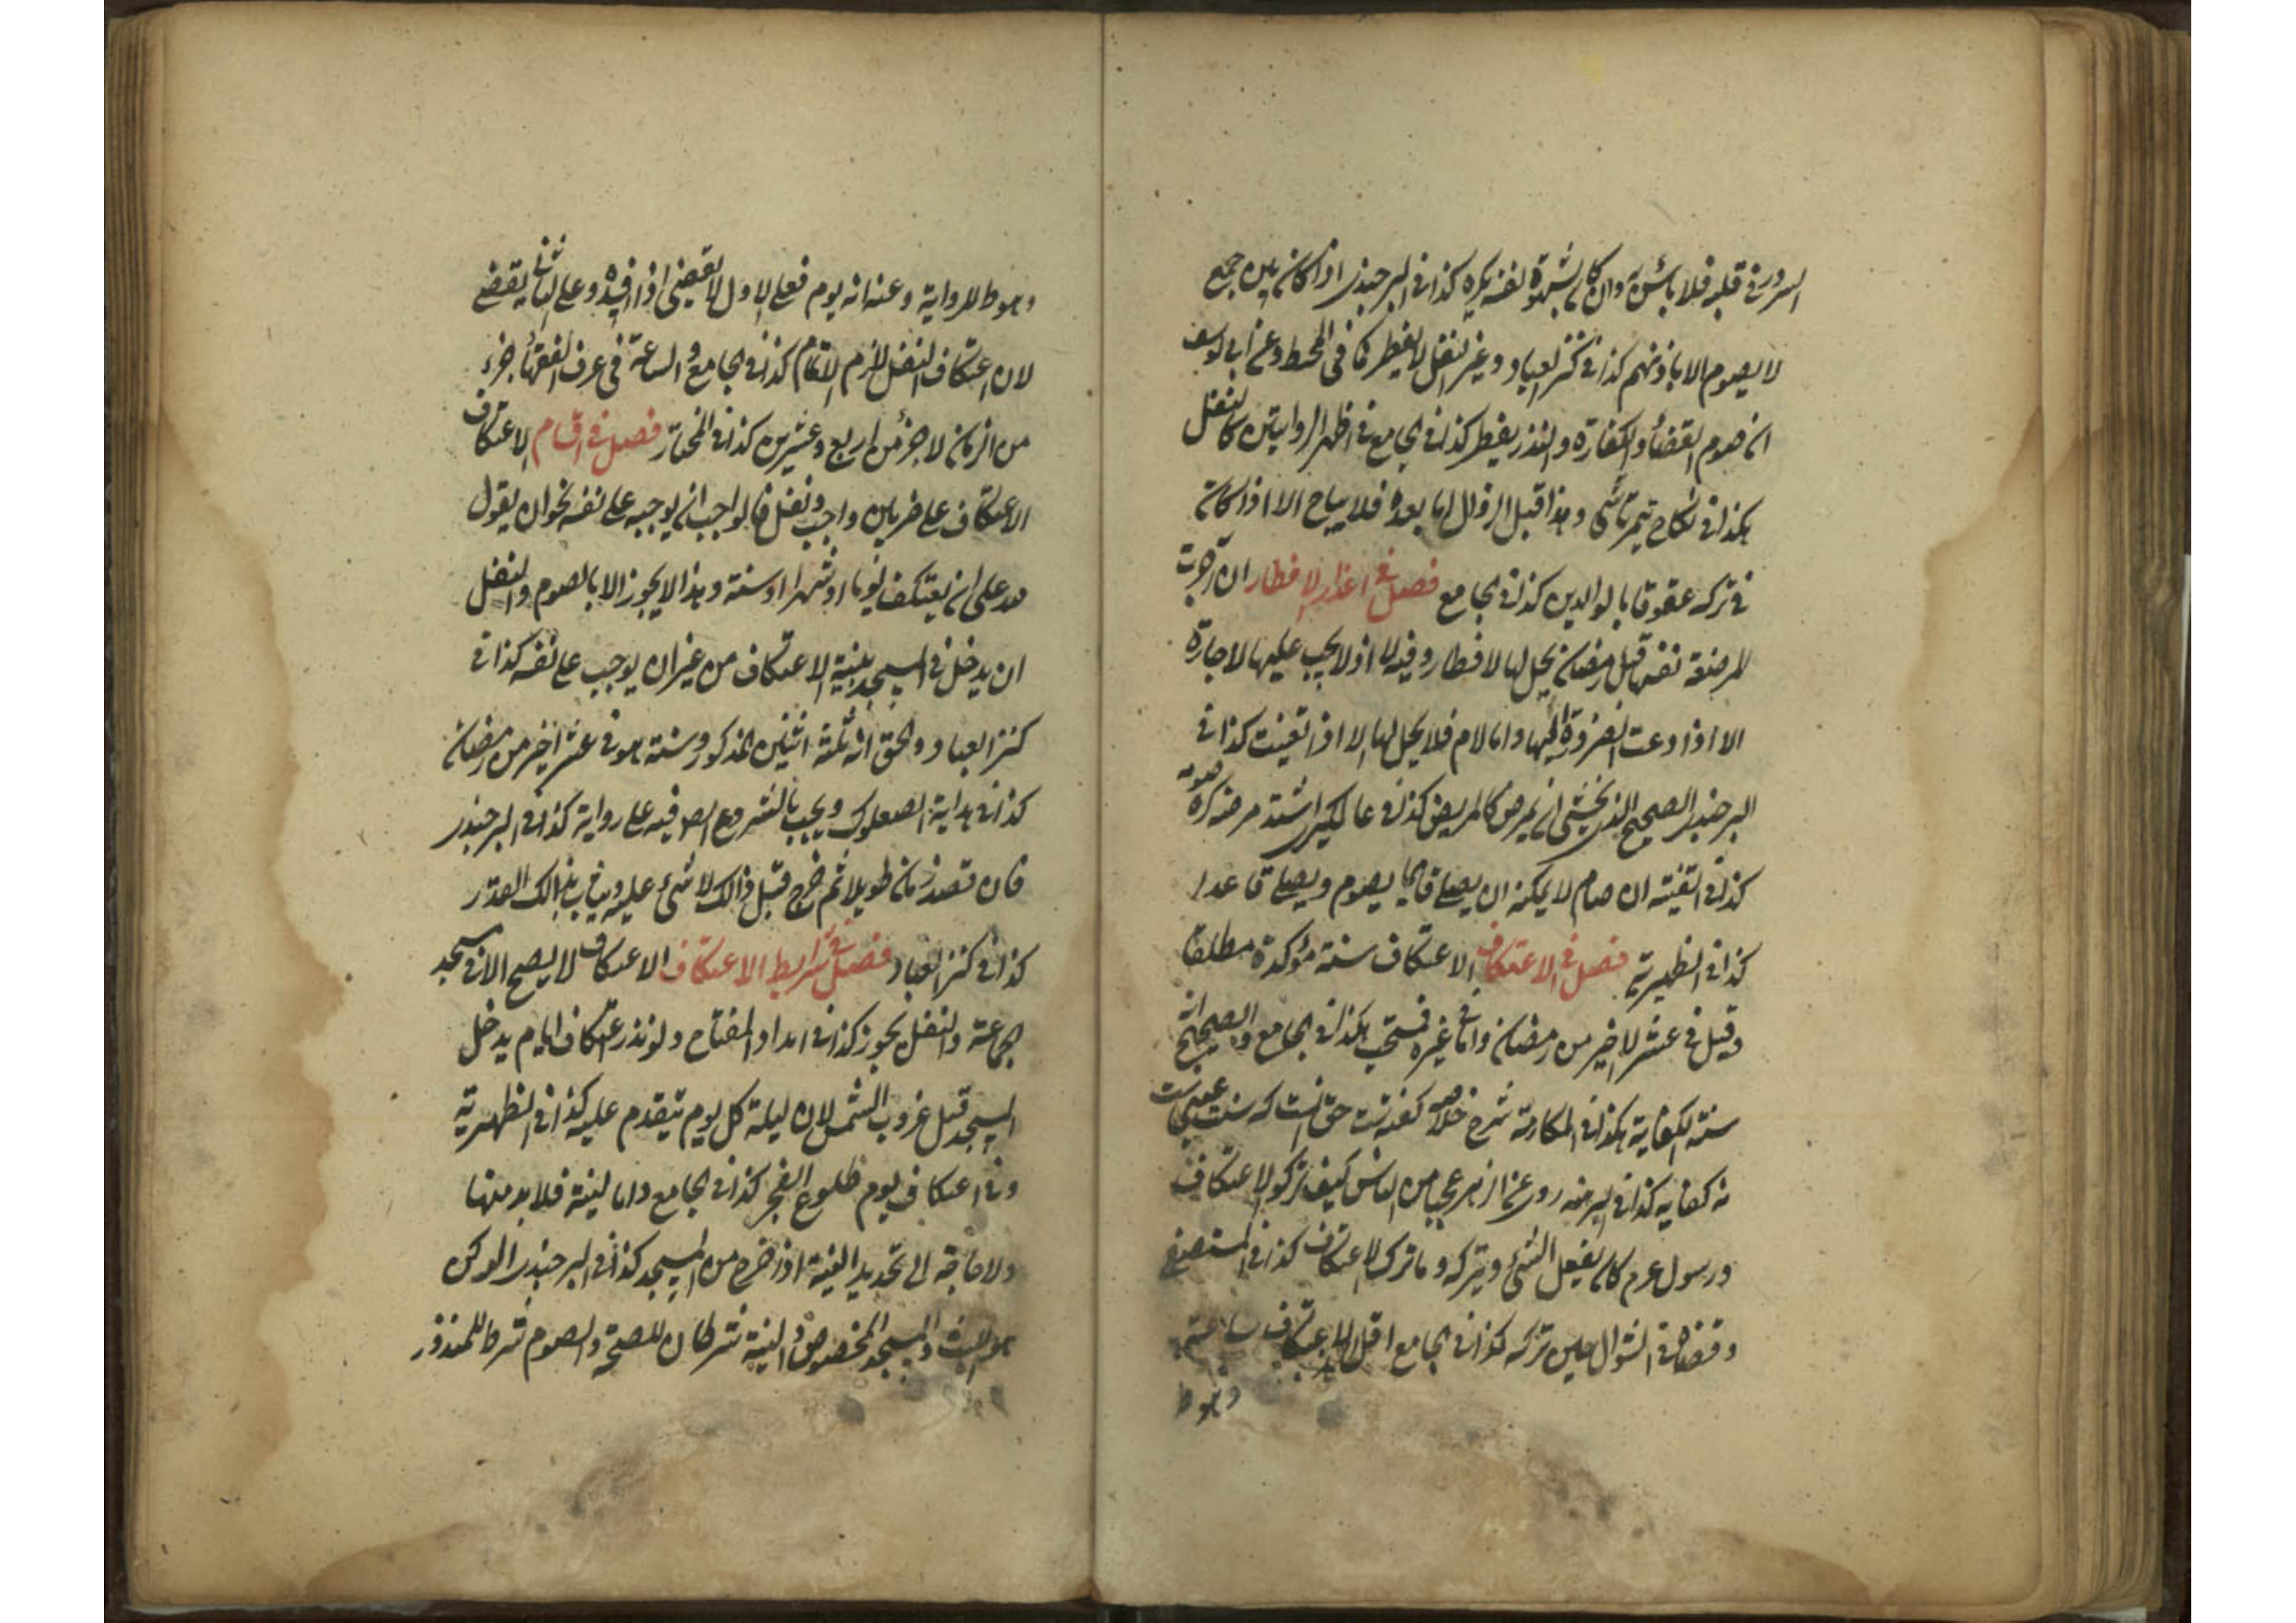 السرور في قلبه فلا بأس به وان كان لشهوة نفسه يكره كذا في البرجندي اذا كان بين جمع
لا يصوم الا باذنهم كذا في كنز العباد وغير النفل لا يفطر كما في المحيط وعن ابي يوسف
ان صوم القضأ والكفارة والنذر يفطر كذا في الجامع في اظهر الروايتين كالنفل
هكذا في نكاح تمرتاشي وهذا قبل الزوال اما بعده فلا يباح الا اذا كان
في تركه عقوقا بالوالدين كذا في الجامع فصل في اعذار الافطار ان آجرت
المرضعة نفسها قبل رمضان يحل لها الافطار وقيل لا اذ لا يجب عليها الاجارة
الا اذا دعت الضرورة اليها واما الام فلا يحل لها الا اذا تعينت كذا في
البرجندي الصحيح الذي يخشى ان يمرض كالمريض كذا في عالمكيري اشتد مرضه كره صومه
كذا في القنية ان صام لا يمكنه ان يصلي قايما يصوم ويصلي قاعدا
كذا في الظهيرية فصل في الاعتكاف الاعتكاف سنة مؤكدة مطلقا
وقيل في عشر الاخير من رمضان واما في غيره فمستحب هكذا في الجامع والصحيح انه
سنة الكفاية هكذا في المكارمة شرح خلاصه كفته است حق انست كه سنت عين است
نه كفايه كذا في البرجند روى عن الزهر عجبا من الناس كيف تركوا الاعتكاف
ورسول عرم كان يفعل الشئ ويتركه وما ترك الاعتكاف كذا في المستصفى
وقضاه في الشوال حين تركه كذا في الجامع اقل الاعتكاف ساعة
وهو ط
وهو ط الرواية وعنه انه يوم فعلى الاول لا يقضي اذا افسده وعلى الثاني يقضي
لان اعتكاف النفل لا يلزم الاتمام كذا في الجامع والساعة في عرف الفقهأ جزء
من الزمان لا جزؤ من اربع وعشرين كذا في المختار فصل في اقسام الاعتكاف
الاعتكاف على ضربين واجب ونفل فالواجب ان يوجبه على نفسه نحو ان يقول
لله على ان يعتكف يوما او شهرا او سنة وهذا لا يجوز الا بالصوم والنفل
ان يدخل في المسجد بنية الاعتكاف من غير ان يوجب على نفسه كذا في
كنز العباد والحق انه ثلثة اثنين المذكور وسنة هو في عشر اخير من رمضان
كذا في هداية الصعلوك ويجب بالشروع الصـ فيه على رواية كذا في البرجندر
فان قصد زمانا طويلا ثم خرج قبل ذالك لا شئ عليه ويثاب بذالك القدر
كذا في كنز العباد فصل في شرايط الاعتكاف الاعتكاف لا يصح الا في مسجد
جماعة والنفل يجوز كذا في امداد المفتاح ولو نذر اعتكاف ايام يدخل
المسجد قبل غروب الشمس لان ليلة كل يوم يتقدم عليه كذا في الظهيرية
وفي اعتكاف يوم طلوع الفجر كذا في الجامع واما النية فلا بد منها
ولا حاجة الى تجديد النية اذا خرج من المسجد كذا في البرجندي الركن
هو اللبث والمسجد المخصوص والنية شرطان للصحة والصوم شرط للمنذور